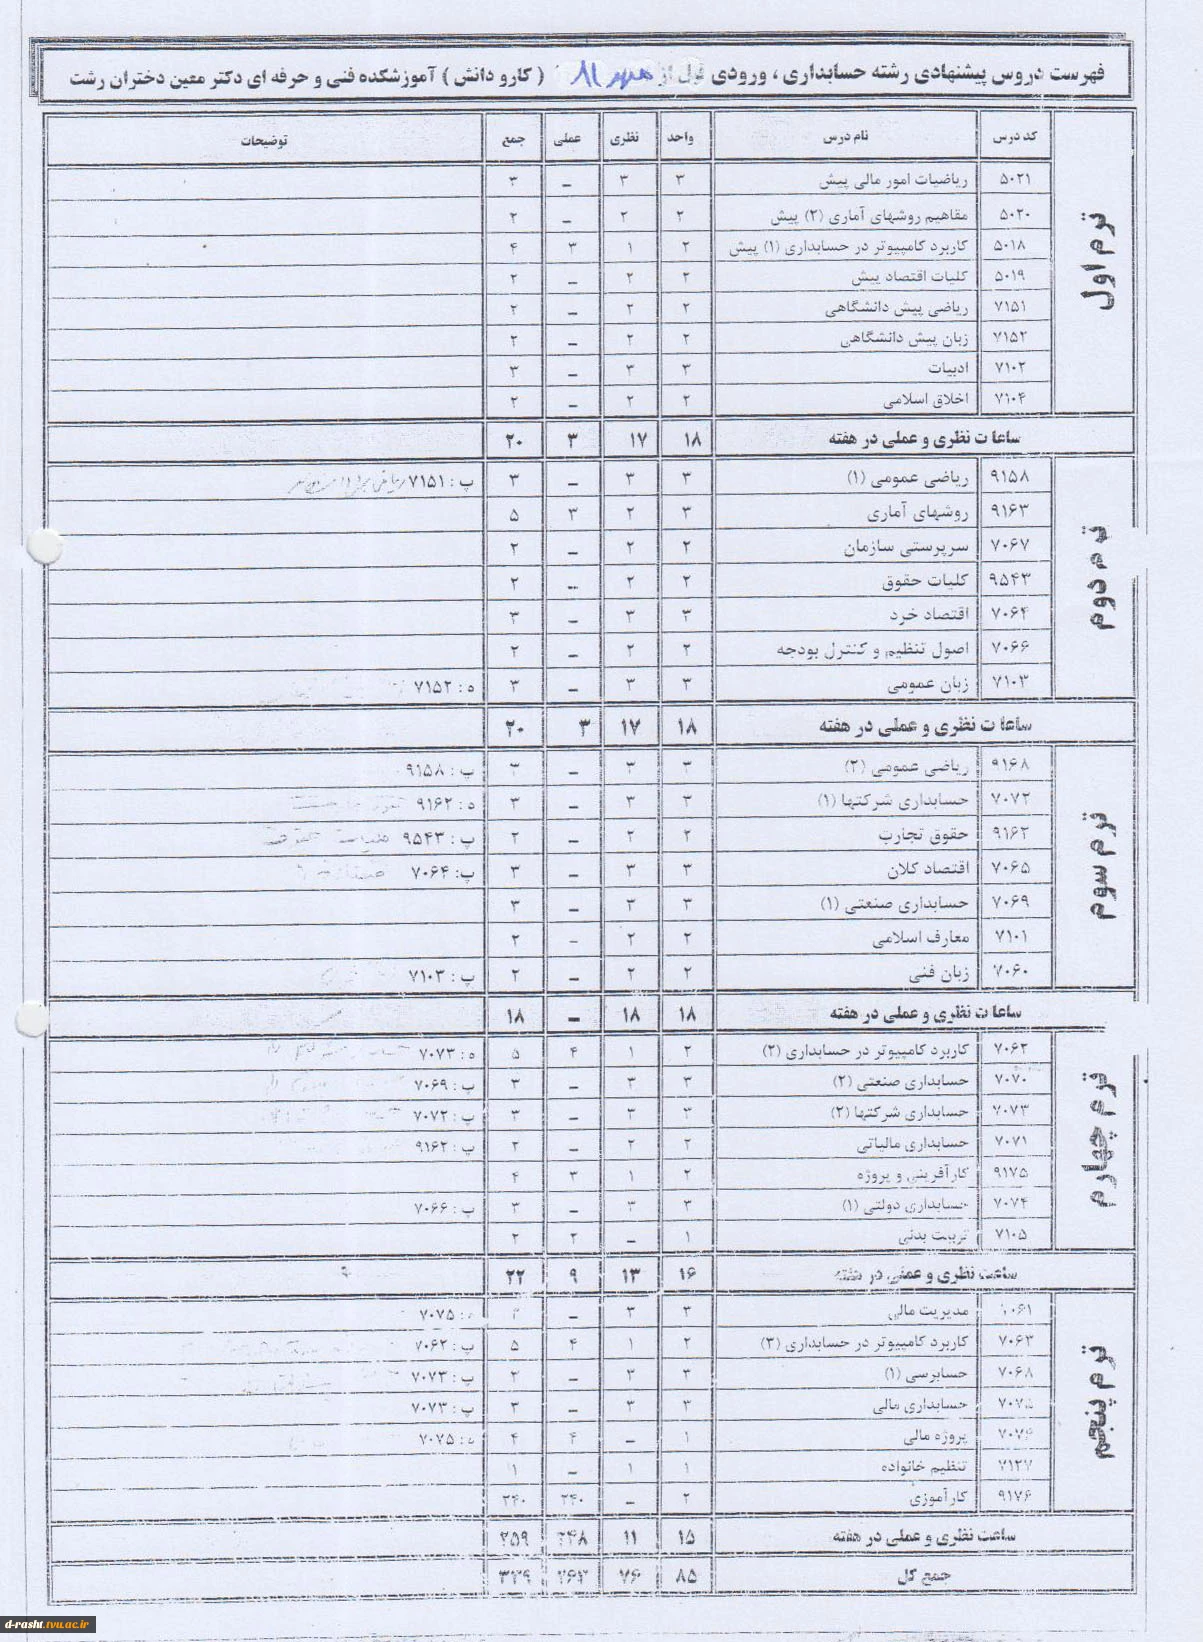 فهرست دروس پیشنهادی رشته حسابداری ، ورودی قبل از مهر ۸۱ ( کارو دانش ) آموزشکده فنی و حرفه ای دکتر معین دختران رشت
کد درس نام درس واحد نظری عملی جمع توضیحات
ترم اول
۵۰۲۱ ریاضیات امور مالی پیش ۳ ۳ – ۳
۵۰۲۰ مفاهیم روشهای آماری (۲) پیش ۲ ۲ – ۲
۵۰۱۸ کاربرد کامپیوتر در حسابداری (۱) پیش ۲ ۱ ۳ ۴
۵۰۱۹ کلیات اقتصاد پیش ۲ ۲ – ۲
۷۱۵۱ ریاضی پیش دانشگاهی ۲ ۲ – ۲
۷۱۵۲ زبان پیش دانشگاهی ۲ ۲ – ۲
۷۱۰۲ ادبیات ۳ ۳ – ۳
۷۱۰۴ اخلاق اسلامی ۲ ۲ – ۲
ساعات نظری و عملی در هفته ۱۸ ۱۷ ۳ ۲۰
ترم دوم
۹۱۵۸ ریاضی عمومی (۱) ۳ ۳ – ۳ پ : ۷۱۵۱
۹۱۶۳ روشهای آماری ۳ ۲ ۳ ۵
۷۰۶۷ سرپرستی سازمان ۲ ۲ – ۲
۹۵۴۳ کلیات حقوق ۲ ۲ – ۲
۷۰۶۴ اقتصاد خرد ۳ ۳ – ۳
۷۰۶۶ اصول تنظیم و کنترل بودجه ۲ ۲ – ۲
۷۱۰۳ زبان عمومی ۳ ۳ – ۳ ه : ۷۱۵۲
ساعات نظری و عملی در هفته ۱۸ ۱۷ ۳ ۲۰
ترم سوم
۹۱۶۸ ریاضی عمومی (۲) ۳ ۳ – ۳ پ : ۹۱۵۸
۷۰۷۲ حسابداری شرکتها (۱) ۳ ۳ – ۳ ه : ۹۱۶۲
۹۱۶۲ حقوق تجارت ۲ ۲ – ۲ پ : ۹۵۴۳
۷۰۶۵ اقتصاد کلان ۳ ۳ – ۳ پ: ۷۰۶۴
۷۰۶۹ حسابداری صنعتی (۱) ۳ ۳ – ۳
۷۱۰۱ معارف اسلامی ۲ ۲ – ۲
۷۰۶۰ زبان فنی ۲ ۲ – ۲ پ : ۷۱۰۳
ساعات نظری و عملی در هفته ۱۸ ۱۸ – ۱۸
ترم چهارم
۷۰۶۲ کاربرد کامپیوتر در حسابداری (۲) ۲ ۱ ۴ ۵ ه : ۷۰۷۳
۷۰۷۰ حسابداری صنعتی (۲) ۳ ۳ – ۳ پ : ۷۰۶۹
۷۰۷۳ حسابداری شرکتها (۲) ۳ ۳ – ۳ پ : ۷۰۷۲
۷۰۷۱ حسابداری مالیاتی ۲ ۲ – ۲ پ : ۹۱۶۲
۹۱۷۵ کارآفرینی و پروژه ۲ ۱ ۳ ۴
۷۰۷۴ حسابداری دولتی (۱) ۳ ۳ – ۳ پ : ۷۰۶۶
۷۱۰۵ تربیت بدنی ۱ – ۲ ۲
ساعت نظری و عملی در هفته ۱۶ ۱۳ ۹ ۲۲
ترم پنجم
۷۰۶۱ مدیریت مالی ۳ ۳ – ۳ ه : ۷۰۷۵
۷۰۶۳ کاربرد کامپیوتر در حسابداری (۳) ۲ ۱ ۴ ۵ پ : ۷۰۶۲
۷۰۶۸ حسابرسی (۱) ۳ ۳ – ۳ پ : ۷۰۷۳
۷۰۷۵ حسابداری مالی ۳ ۳ – ۳ پ : ۷۰۷۳
۷۰۷۶ پروژه مالی ۱ – ۴ ۴ ه : ۷۰۷۵
۷۱۲۷ تنظیم خانواده ۱ ۱ – ۱
۹۱۷۶ کارآموزی ۲ – ۲۴۰ ۲۴۰
ساعت نظری و عملی در هفته ۱۵ ۱۱ ۲۴۸ ۲۵۹
جمع کل ۸۵ ۷۶ ۲۶۳ ۳۳۹
d-rasht.tvu.ac.ir